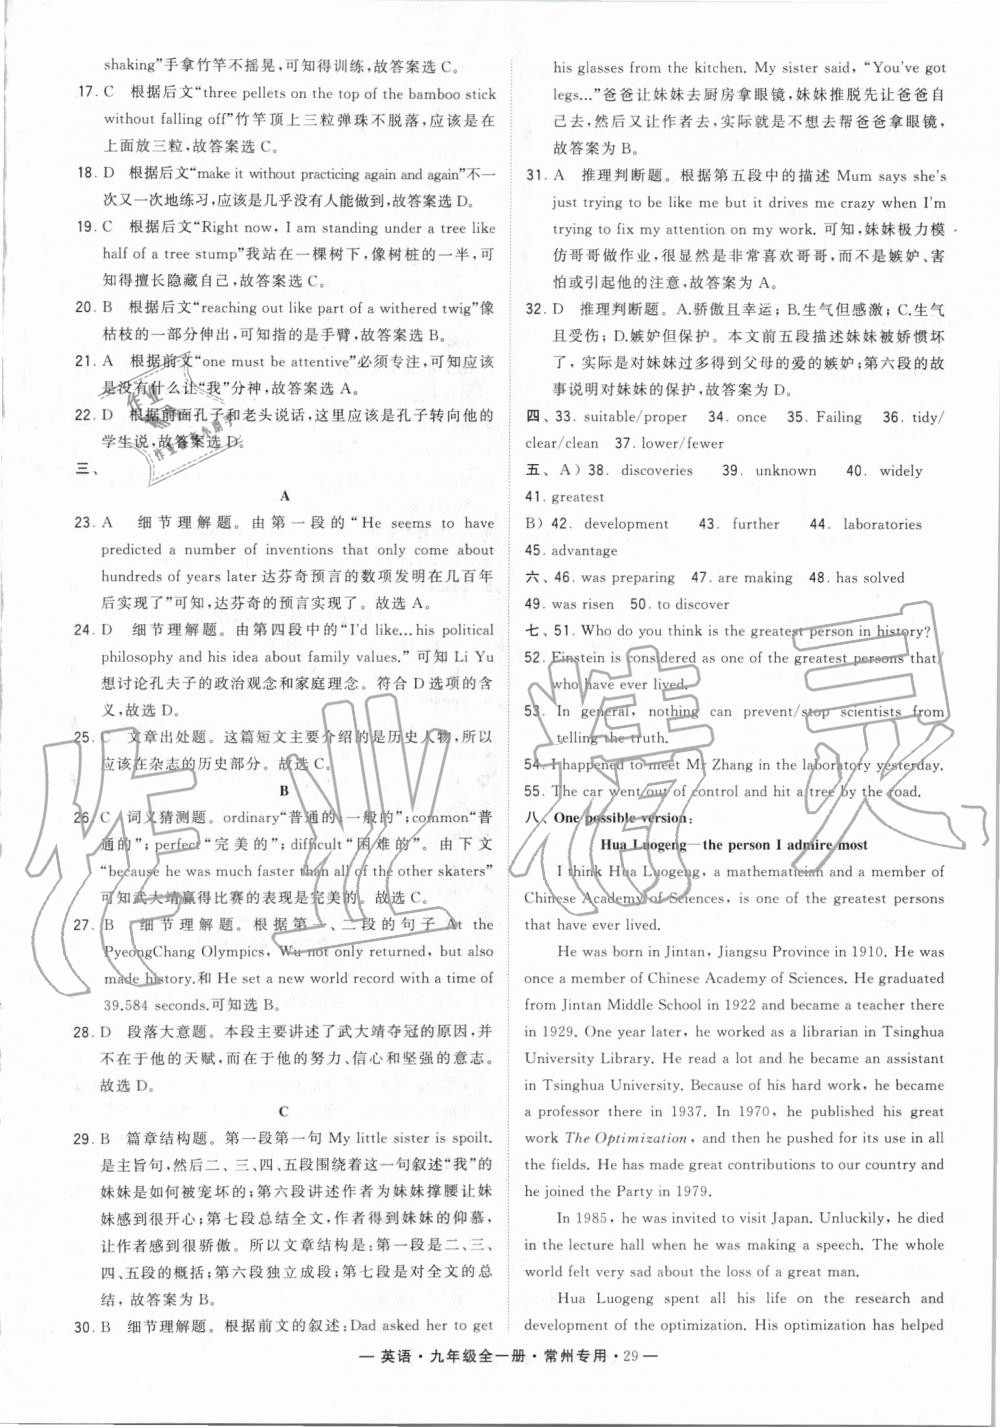 shaking”手拿竹竿不摇晃,可知得训练,故答案选 C。
17. C 根据后文“three pellets on the top of the bamboo stick
without falling off”竹竿顶上三粒弹珠不脱落,应该是在
上面放三粒,故答案选 C。
18. D 根据后文“make it without practicing again and again”不一
次又一次地练习,应该是几乎没有人能做到,故答案选 D。
19. C 根据后文“Right now, I am standing under a tree like
half of a tree stump”我站在一棵树下,像树桩的一半,可
知得擅长隐藏自己,故答案选 C。
20. B 根据后文“reaching out like part of a withered twig”像
枯枝的一部分伸出,可知指的是手臂,故答案选 B。
21. A 根据前文“one must be attentive”必须专注,可知应该
是没有什么让“我”分神,故答案选 A。
22. D 根据前面孔子和老头说话,这里应该是孔子转向他的
学生说,故答案选 D。
三、
A
23. A 细节理解题。由第一段的“He seems to have
predicted a number of inventions that only come about
hundreds of years later 达芬奇预言的数项发明在几百年
后实现了”可知,达芬奇的预言实现了。故选 A。
24. D 细节理解题。由第四段中的“I'd like…his political
philosophy and his idea about family values.” 可知 Li Yu
想讨论孔夫子的政治观念和家庭理念。符合 D 选项的含
义,故选 D。
25. C 文章出处题。这篇短文主要介绍的是历史人物,所以
应该在杂志的历史部分。故选 C。
B
26. C 词义猜测题。ordinary“普通的;一般的”;common“普
通的”;perfect“完美的”;difficult“困难的”。由下文
“because he was much faster than all the other skaters”
可知武大靖赢得比赛的表现是完美的。故选 C。
27. B 细节理解题。根据第一、二段的句子 At the
PyeongChang Olympics, Wu not only returned, but also
made history.和 He set a new world record with a time of
39.584 seconds.可知选 B。
28. D 段落大意题。本段主要讲述了武大靖夺冠的原因,并
不在于他的天赋,而在于他的努力、信心和坚强的意志。
故选 D。
C
29. B 篇章结构题。第一段第一句 My little sister is spoilt.
是主旨句,然后二、三、四、五段围绕着这一句叙述“我”的
妹妹是如何被宠坏的;第六段讲述作者为妹妹撑腰让妹
妹感到很开心;第七段总结全文,作者得到妹妹的仰慕,
让作者感到很骄傲。所以文章结构是:第一段是二、三、
四、五段的概括;第六段独立成段;第七段是对全文的总
结,故答案为 B。
30. B 细节理解题。根据前文的叙述:Dad asked her to get
his glasses from the kitchen. My sister said, “You've got
legs…”爸爸让妹妹去厨房拿眼镜,妹妹推脱先让爸爸自
己去,然后又让作者去,实际就是不想去帮爸爸拿眼镜,
故答案为 B。
31. A 推理判断题。根据第五段中的描述 Mum says she's
just trying to be like me but it drives me crazy when I'm
trying to fix my attention on my work. 可知,妹妹极力模
仿哥哥做作业,很显然是非常喜欢哥哥,而不是嫉妒、害
怕或引起他的注意,故答案为 A。
32. D 推理判断题。A.骄傲且幸运;B.生气但感激;C.生气
且受伤;D.嫉妒但保护。本文前五段描述妹妹被娇惯坏
了,实际是对妹妹过多得到父母的爱的嫉妒;第六段的故
事说明对妹妹的保护,故答案为 D。
四、33. suitable/proper 34. once 35. Failing 36. tidy/
clear/clean 37. lower/fewer
五、A) 38. discoveries 39. unknown 40. widely
41. greatest
B) 42. development 43. further 44. laboratories
45. advantage
六、46. was preparing 47. are making 48. has solved
49. was risen 50. to discover
七、51. Who do you think is the greatest person in history?
52. Einstein is considered as one of the greatest persons that/
who have ever lived.
53. In general, nothing can prevent/stop scientists from
telling the truth.
54. I happened to meet Mr Zhang in the laboratory yesterday.
55. The car went out of control and hit a tree by the road.
八、One possible version:
Hua Luogeng—the person I admire most
I think Hua Luogeng, a mathematician and a member of
Chinese Academy of Sciences, is one of the greatest persons
that have ever lived.
He was born in Jintan, Jiangsu Province in 1910. He was
once a member of Chinese Academy of Sciences. He graduated
from Jintan Middle School in 1922 and became a teacher there
in 1929. One year later, he worked as a librarian in Tsinghua
University Library. He read a lot and he became an assistant
in Tsinghua University. Because of his hard work, he became
a professor there in 1937. In 1970, he published his great
work The Optimization, and then he pushed for its use in all
the fields. He has made great contributions to our country and
he joined the Party in 1979.
In 1985, he was invited to visit Japan. Unluckily, he died
in the lecture hall when he was making a speech. The whole
world felt very sad about the loss of a great man.
Hua Luogeng spent all his life on the research and
development of the optimization. His optimization has helped
— 英语·九年级全一册·常州专用·29 —
作业精灵